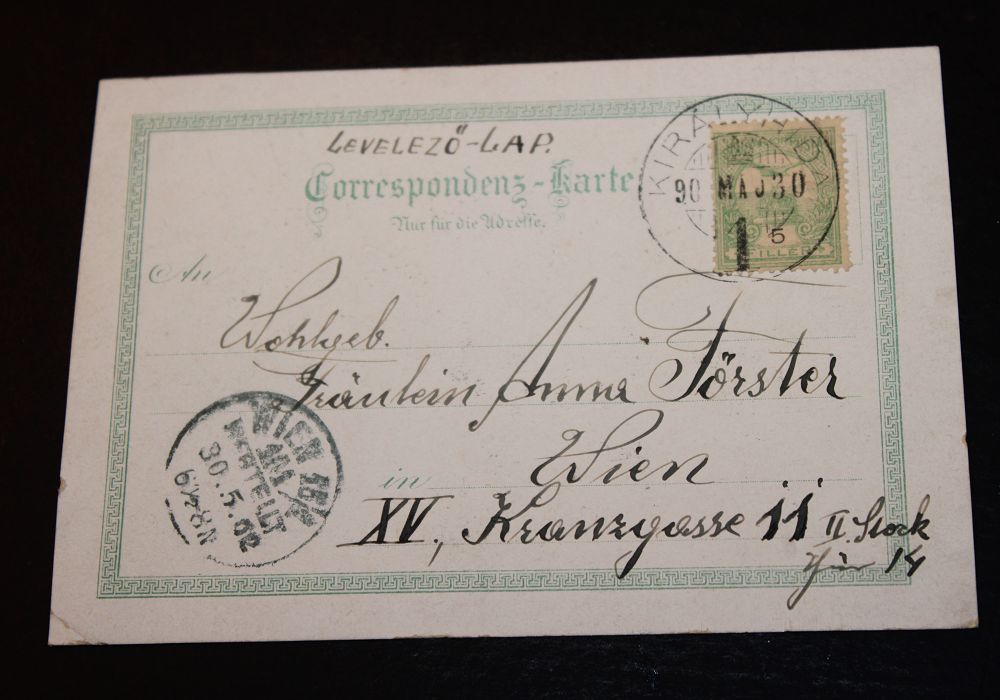 LEVELEZŐ-LAP.
Correspondenz-Karte
Nur für die Adresse.
KIRÁLYHIDA
90 MAJ 30
5
FILLÉR
An
Wohlgeb.
Fräulein Anna Förster
in Wien
XV., Kranzgasse 11 II. Stock
Thür 14
WIEN
BESTELLT
30.5.02
6½-8N